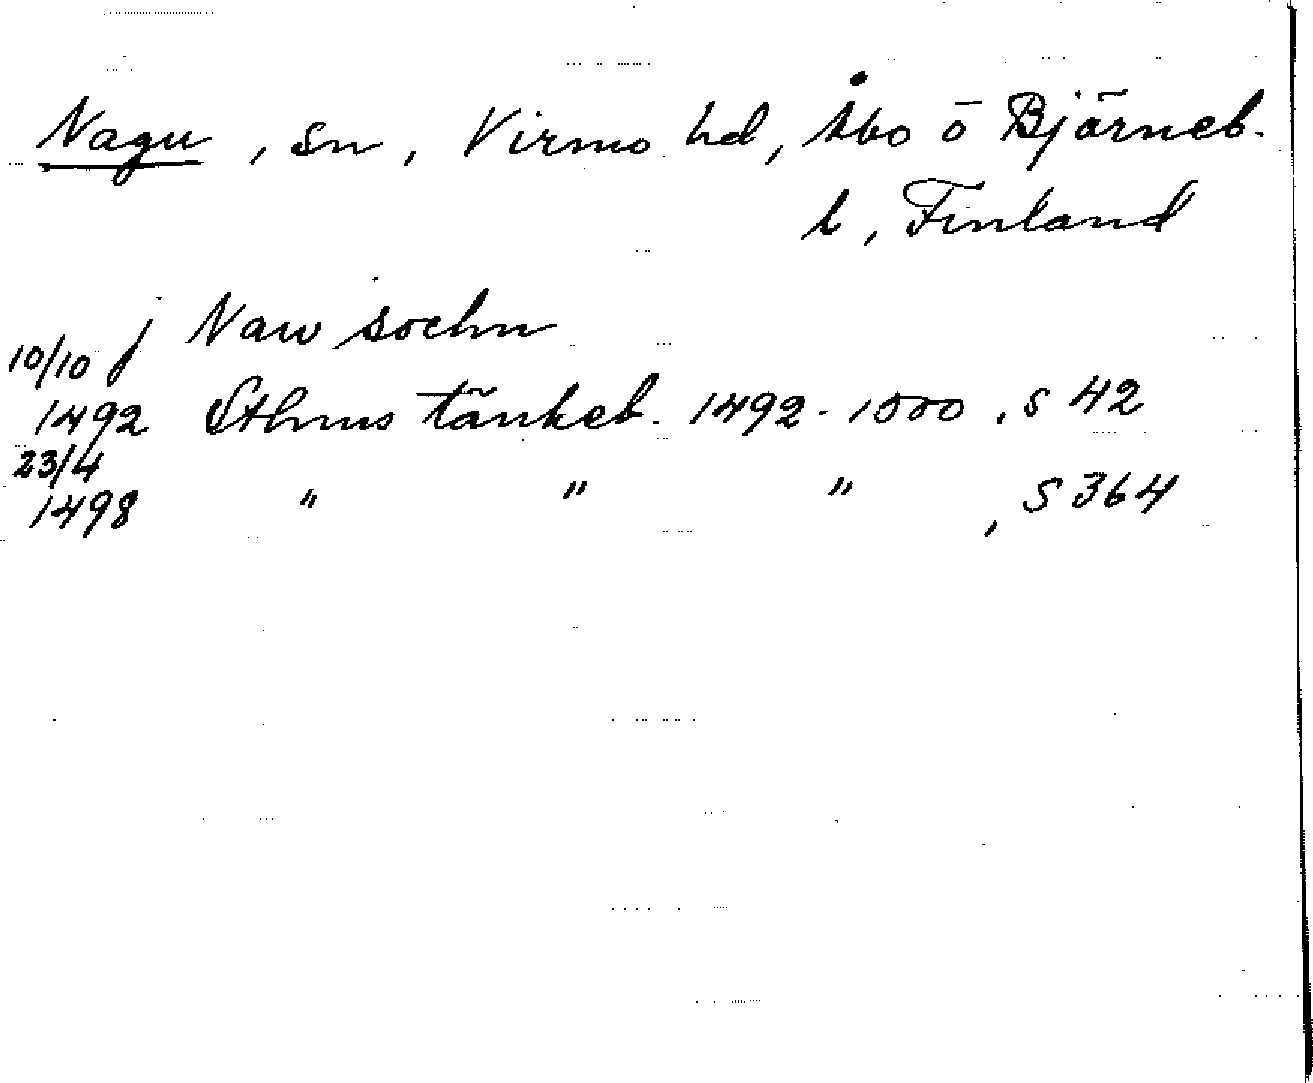 Nagu, sn, Virmo hd, Åbo o Björneb.
l, Finland
j Naw sochn
10/10
1492 Sthms tänkeb. 1492-1500, s 42
23/4
1498 " " ", s 364